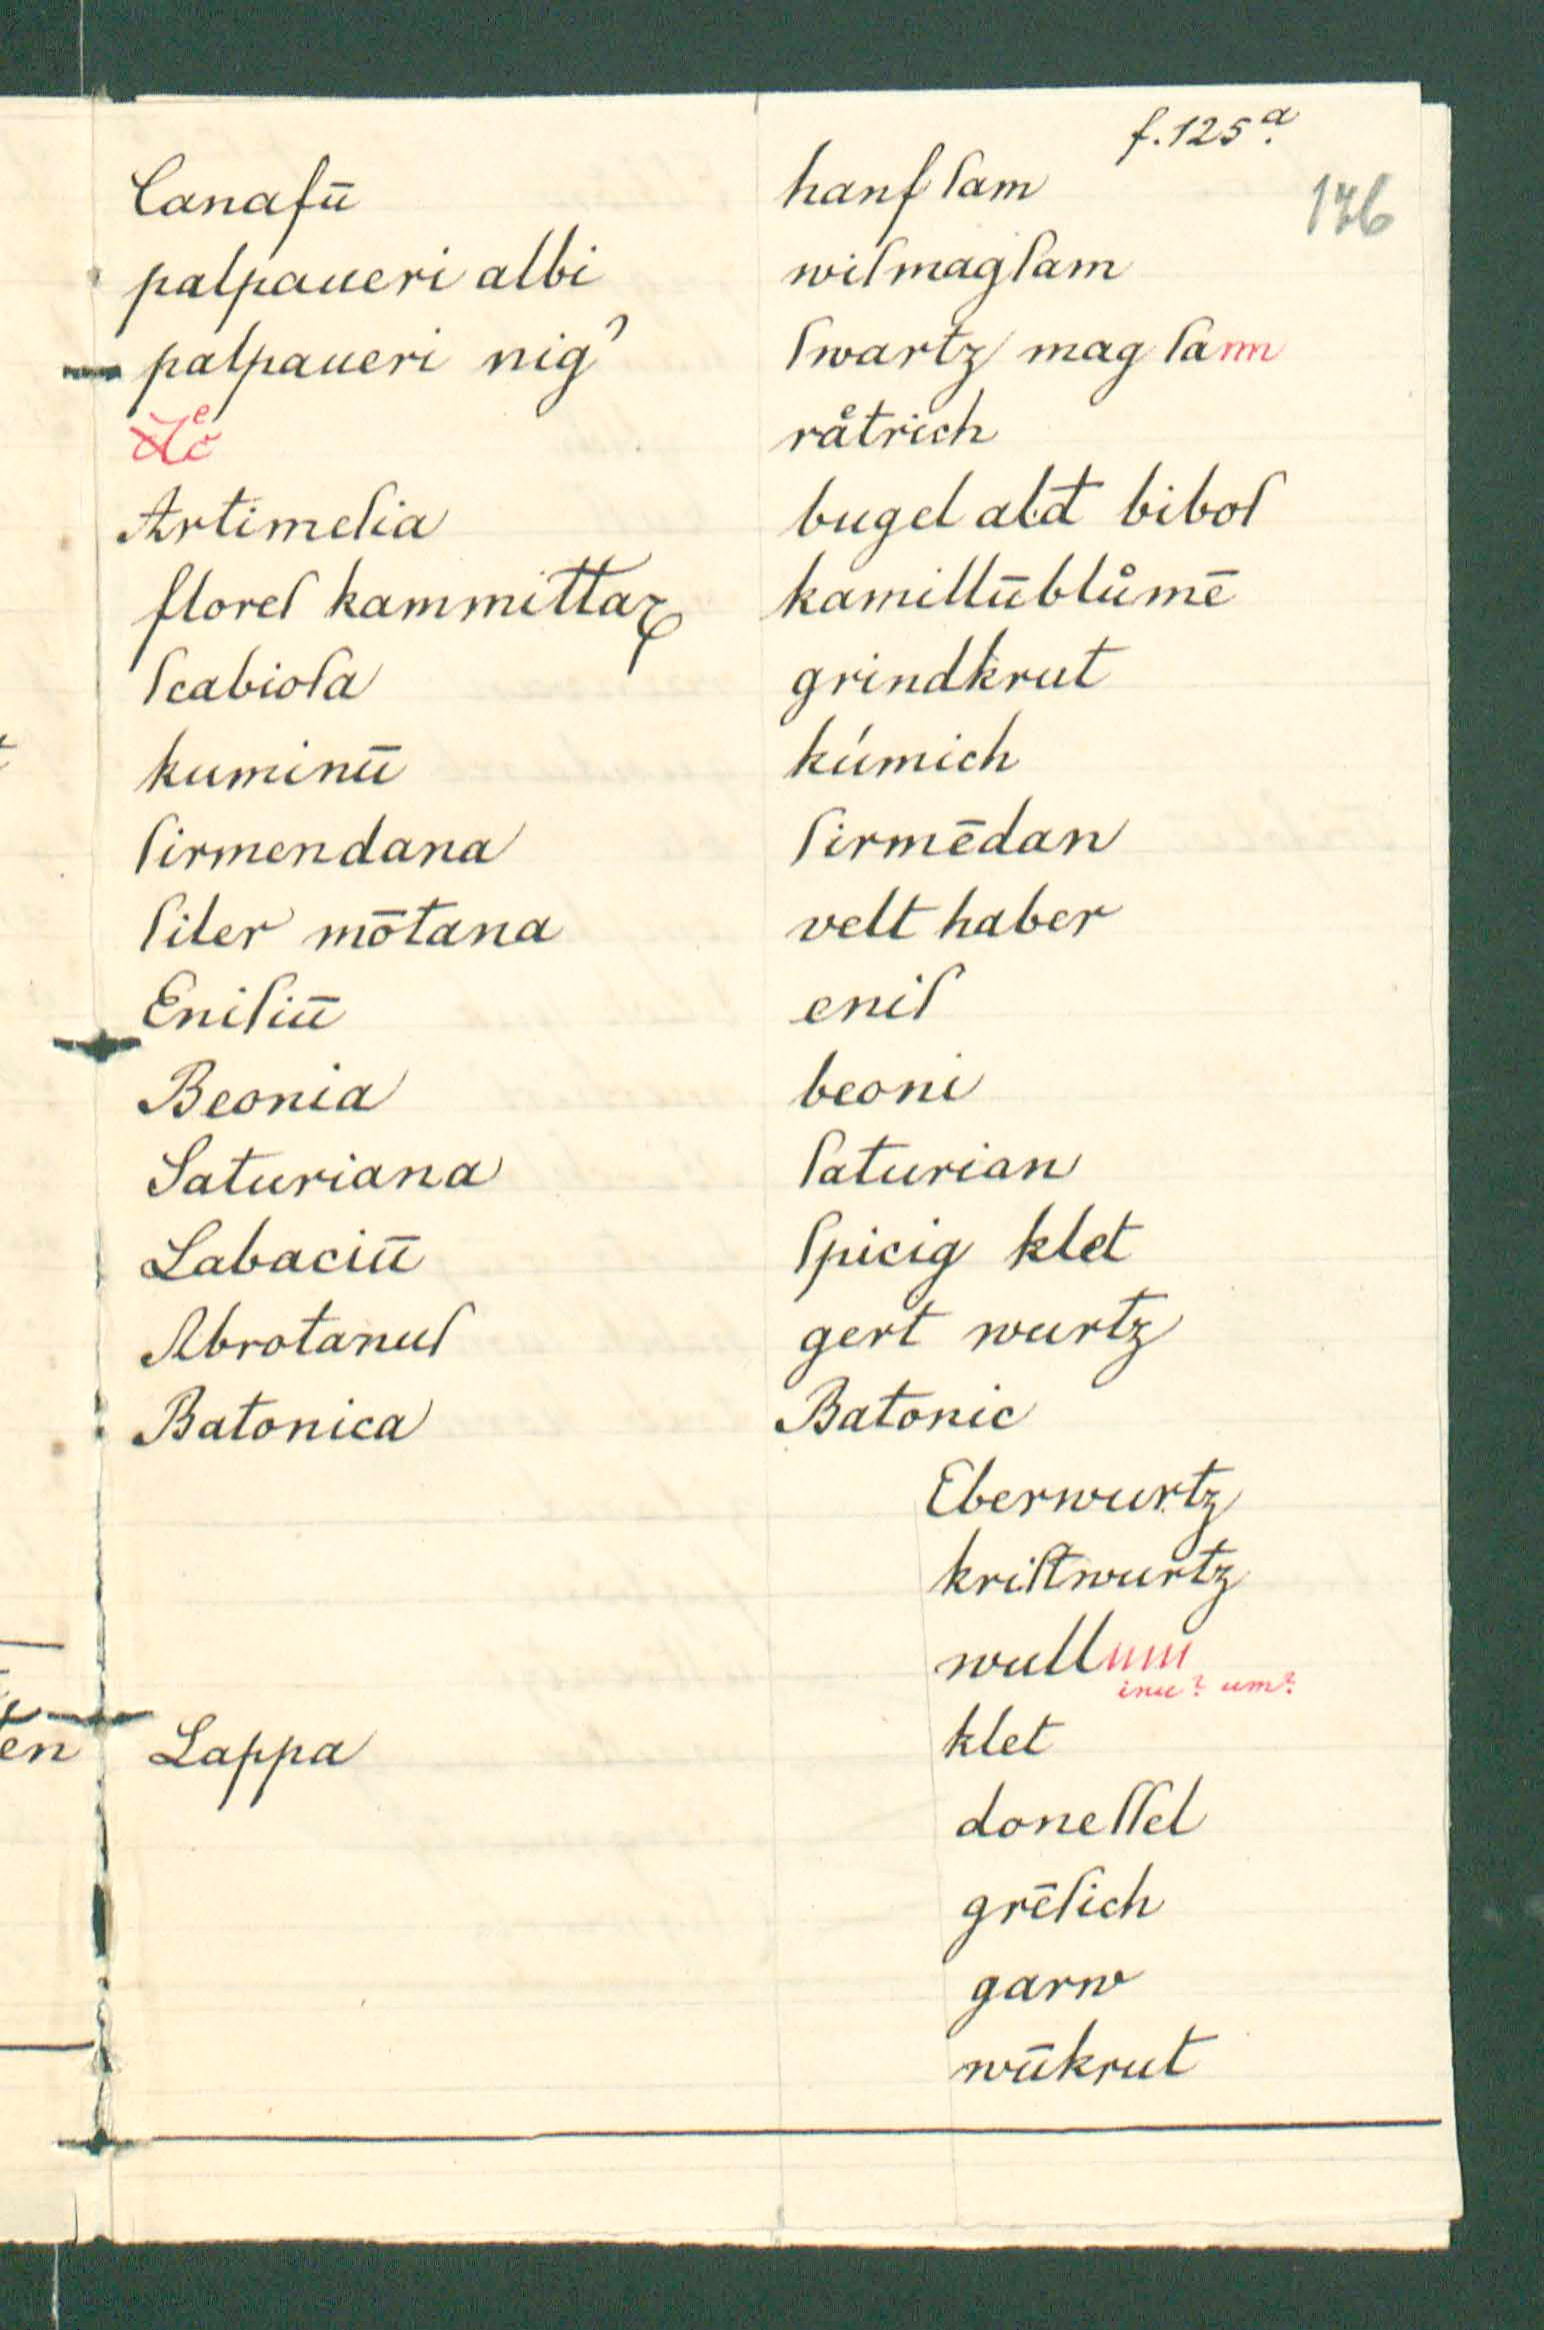 f. 125ᵃ.
136
Canafū hanf ſam
palpaueri albi wiſmagſam
palpaueri nigˀ ſwartz mag ſam
råtrich
Artimeſia bugel ald̄ biboſ
floreſ kammillaꝝ kamillūblůmē
ſcabioſa grindkrut
kuminū kúmich
ſirmendana ſirmēdan
ſiler mōtana velt haber
Eniſiū eniſ
Beonia beoni
Saturiana ſaturian
Labaciū ſpicig klet
Abrotanuſ gert wurtz
Batonica Batonic
Eberwurtz
kriſtwurtz
wullum
inu? um?
Lappa klet
doneſſel
grēſich
garw
wūkrut
en